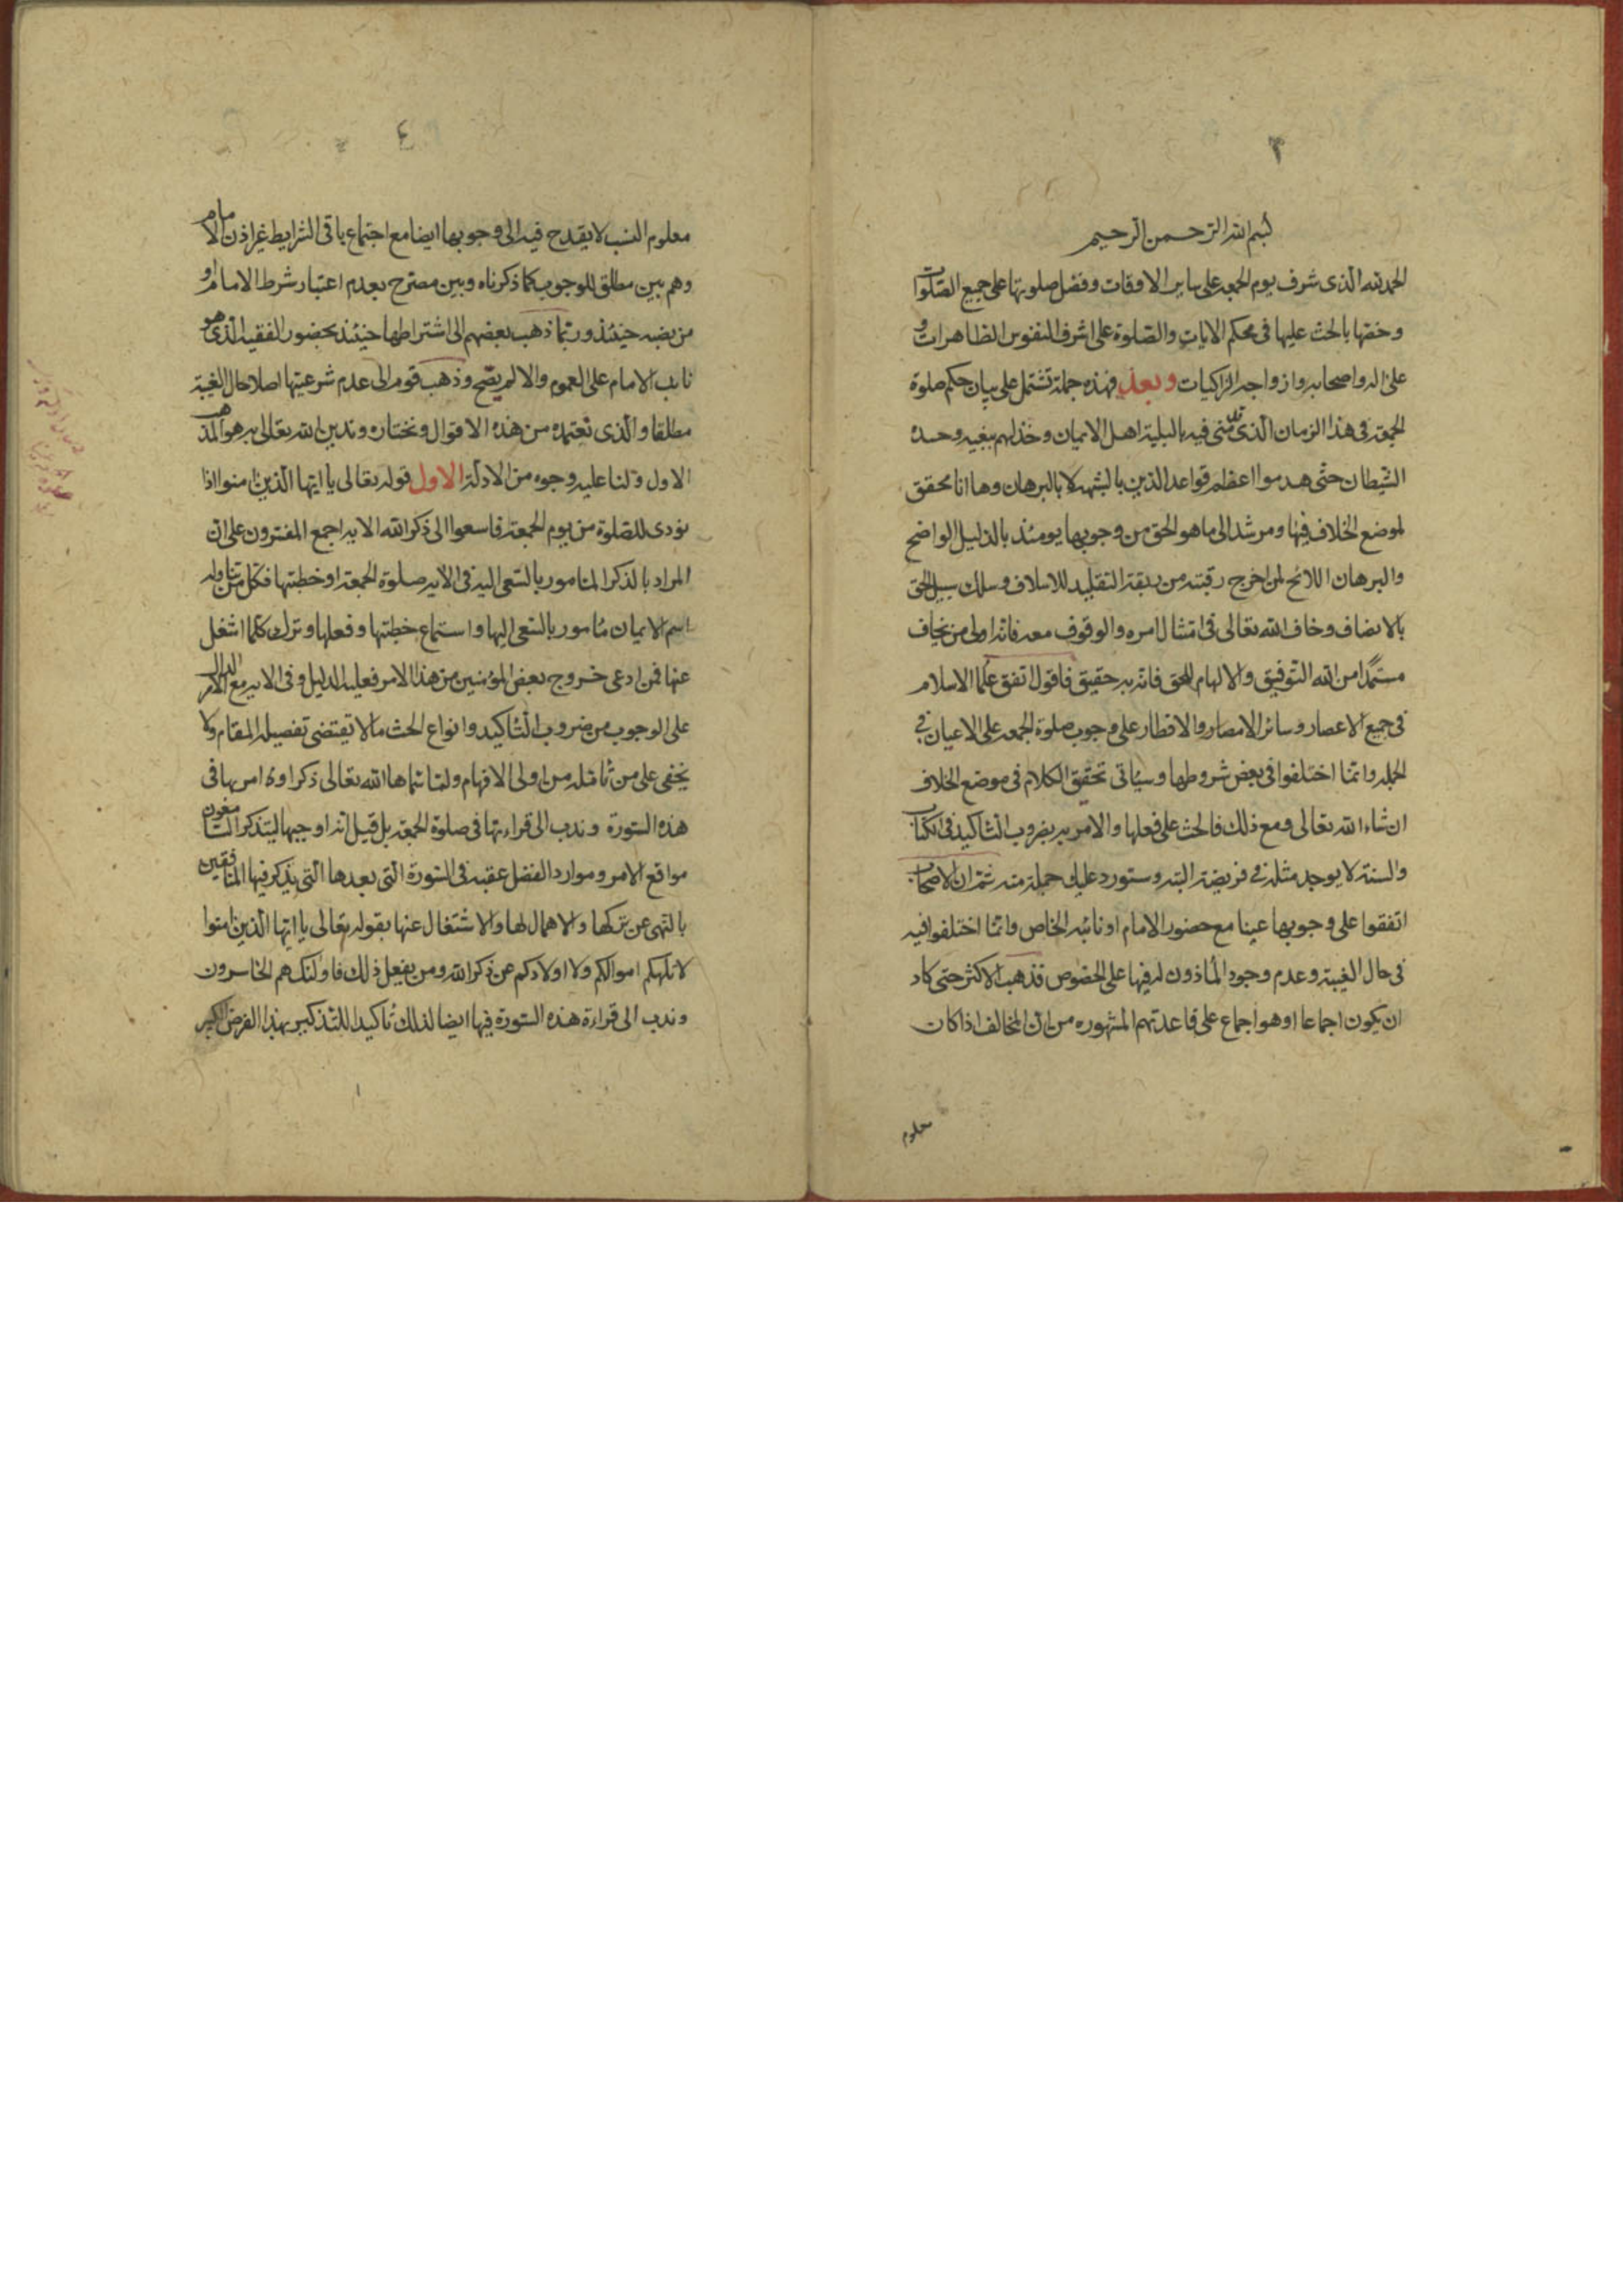 ٣
بسم الله الرحمن الرحيم
الحمد لله الذى شرف يوم الجمعه على ساير الاوقات وفضل صلوتها على جميع الصلوات
وخصها بالحث عليها فى محكم الايات والصلوة على اشرف النفوس الطاهرات و
على اله واصحابه وازواجه الزاكيات وبعد فهذه جملة تشتمل على بيان حكم صلوة
الجمعة فى هذا الزمان الذى منى فيه بالبلية اهل الايمان وخذلهم ببغيه وحسده
الشيطان حتى هدموا اعظم قواعد الدين بالشبهة لا بالبرهان وها انا محقق
لموضع الخلاف فيها ومرشد الى ما هو الحق من وجوبها يومئذ بالدليل الواضح
والبرهان اللائح لمن اخرج رقبته من ربقة التقليد للاسلاف وسلك سبيل الحق
بالانصاف وخاف الله تعالى فى امتثال امره والوقوف معه فانه اولى من يخاف
مستمدا من الله التوفيق والالهام للحق فانه به حقيق فاقول اتفق علما الاسلام
فى جميع الاعصار وسائر الامصار والاقطار على وجوب صلوة الجمعه على الاعيان فى
الجمله وانما اختلفوا فى بعض شروطها وسياتى تحقيق الكلام فى موضع الخلاف
ان شاء الله تعالى ومع ذلك فالحث على فعلها والامر به بضروب التاكيد فى الكتاب
والسنة لا يوجد مثله فى فريضة البته وستورد عليك جملة منه ثم ان الاصحاب
اتفقوا على وجوبها عينا مع حضور الامام او نائبه الخاص وانما اختلفوا فيه
فى حال الغيبة وعدم وجود الماذون له فيها على الخصوص فذهب الاكثر حتى كاد
ان يكون اجماعا او هو اجماع على قاعدتهم المشهوره من ان المخالف اذا كان
معلوم
٤
معلوم النسب لا يقدح فيه الى وجوبها ايضا مع اجتماع باقى الشرايط غير اذن الامام
وهم بين مطلق للوجوب كما ذكرناه وبين مصرح بعدم اعتبار شرط الامام او
من نصبه حينئذ وربما ذهب بعضهم الى اشتراطها حينئذ بحضور الفقيه الذى هو
نايب الامام على العموم والا لم يصح وذهب قوم الى عدم شرعيتها اصلا حال الغيبة
مطلقا والذى نعتمده من هذه الاقوال ونختاره وندين الله تعالى به هو المذهب
الاول ولنا عليه وجوه من الادلة الاول قوله تعالى يا ايها الذين امنوا اذا
نودى للصلوة من يوم الجمعة فاسعوا الى ذكر الله الايه اجمع المفسرون على ان
المراد بالذكر المامور بالسعى اليه فى الايه صلوة الجمعة او خطبتها فكل من تناوله
اسم الايمان مامور بالسعى اليها واستماع خطبتها وفعلها وترك كلما اشغل
عنها فمن ادعى خروج بعض المؤمنين من هذا الامر فعليه الدليل وفى الايه مع الامر الدال
على الوجوب من ضروب التاكيد وانواع الحث ما لا يقتضى تفصيله المقام ولا
يخفى على من تامله من اولى الافهام ولما سماها الله تعالى ذكرا وامر بها فى
هذه السورة وندب الى قراءتها فى صلوة الجمعة بل قيل انه اوجبها ليتذكر السامعون
مواقع الامر وموارد الفضل عقبه فى السورة التى بعدها التى يذكر فيها المنافقين
بالنهى عن تركها والاهمال لها والاشتغال عنها بقوله تعالى يا ايها الذين امنوا
لا تلهكم اموالكم ولا اولادكم عن ذكر الله ومن يفعل ذلك فاولئك هم الخاسرون
وندب الى قراءة هذه السورة فيها ايضا لذلك تاكيدا للتذكير بهذا الفرض الكبير